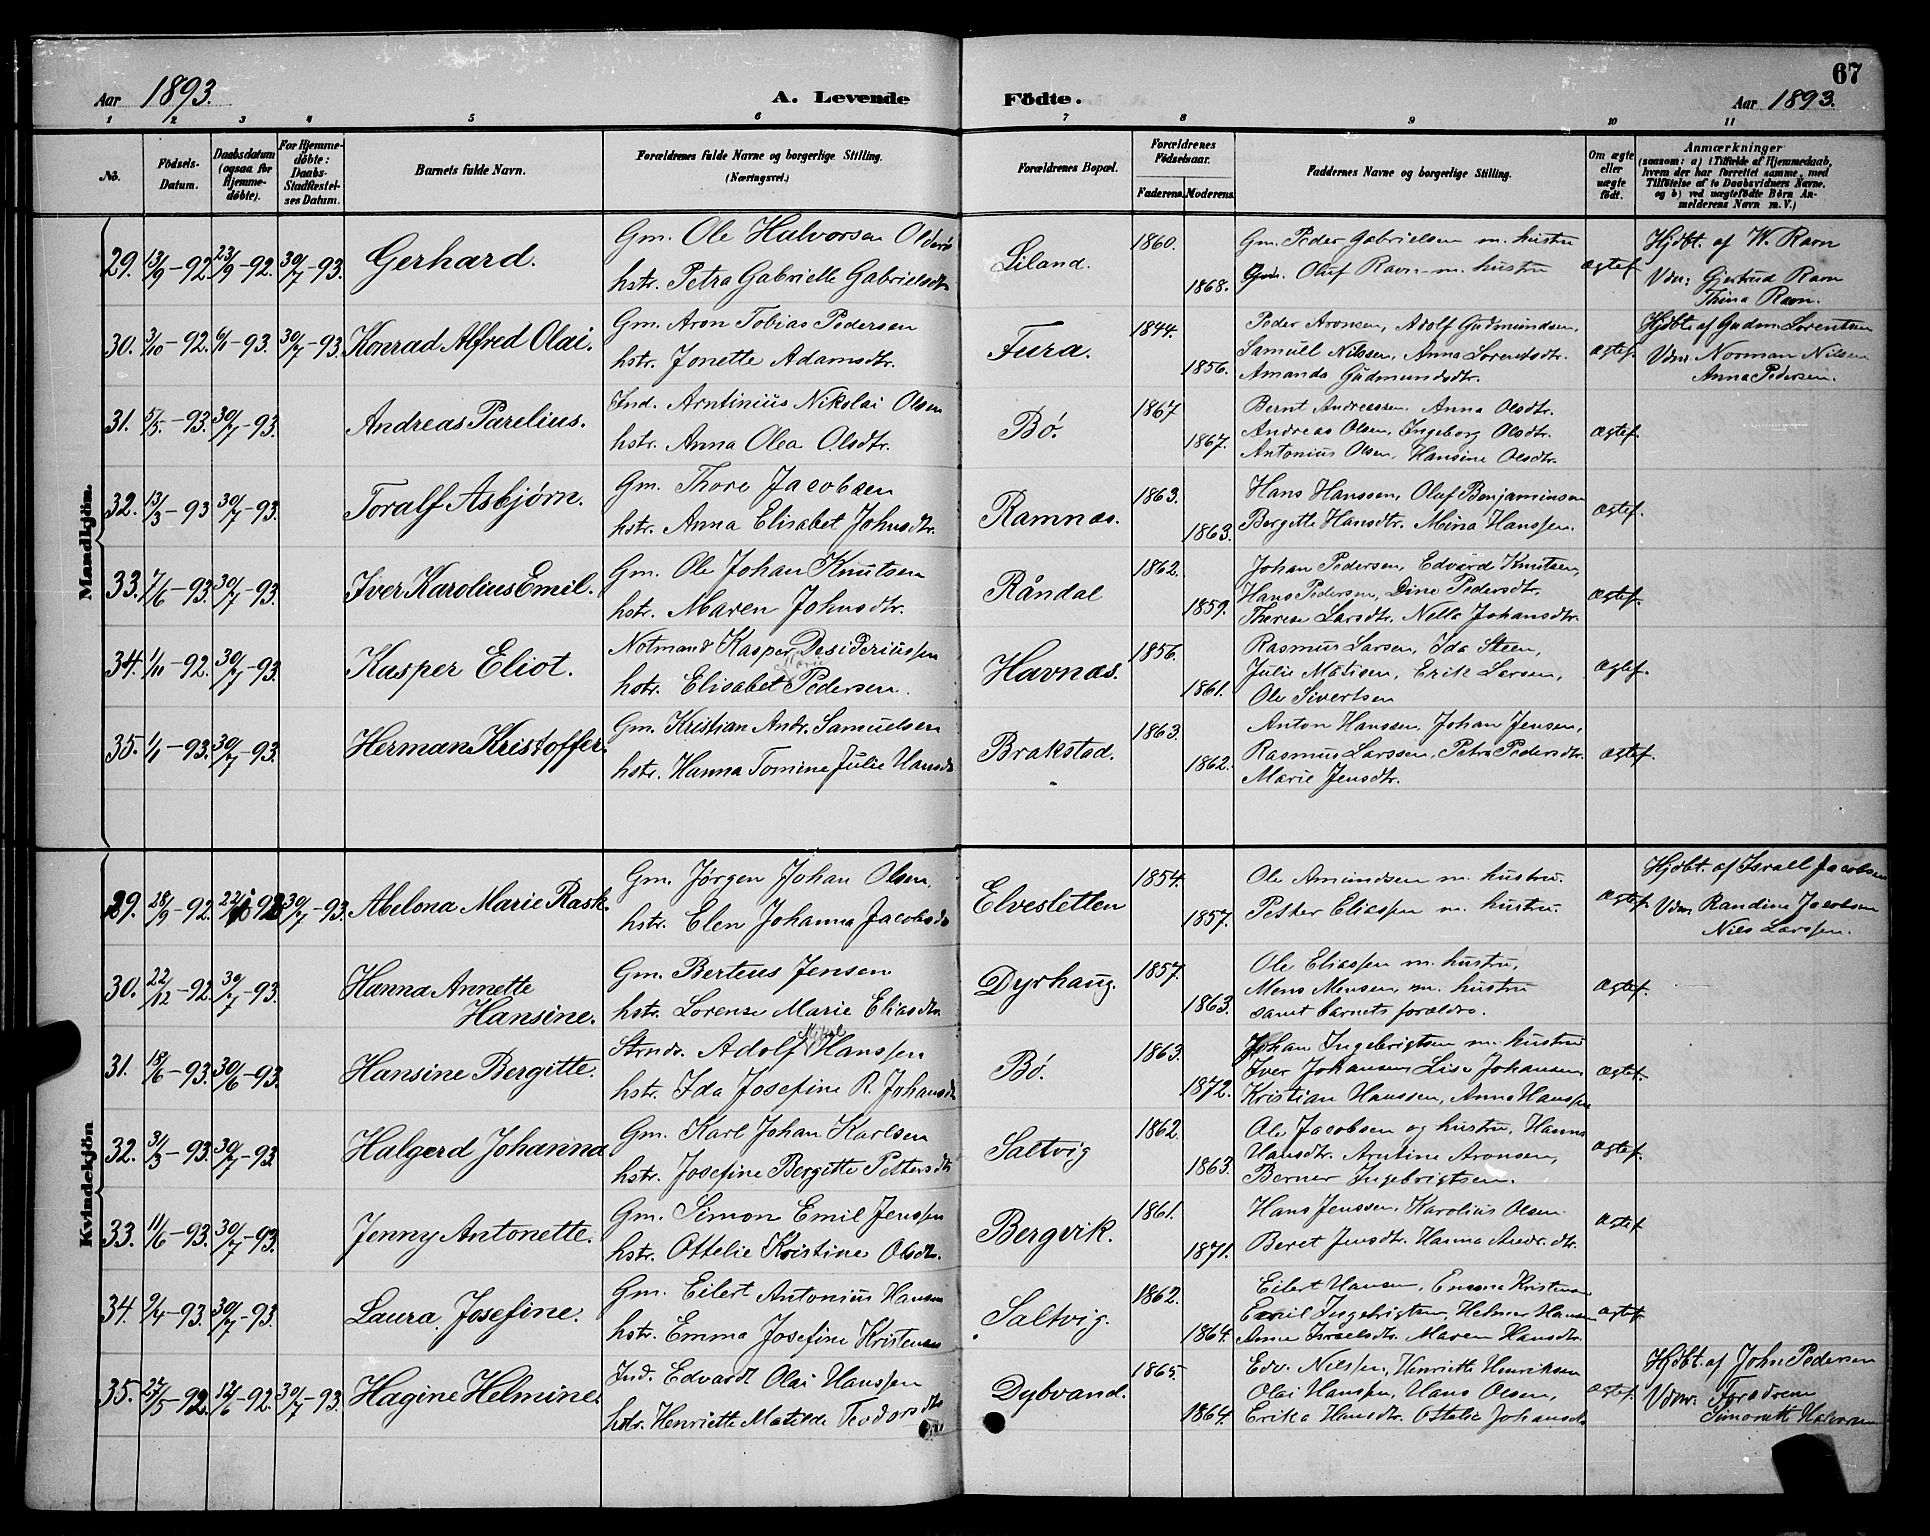 67
Aar 1893. A. Levende Födte. Aar 1893.
1 2 3 4 5 6 7 8 9 10 11
No. Födsels-Datum. Daabsdatum (ogsaa for Hjemme-døbte). For Hjemme-døbte: Daabs-Stadfæstel-ses Datum. Barnets fulde Navn. Forældrenes fulde Navne og borgerlige Stilling. (Næringsvei.) Forældrenes Bopæl. Forældrenes Fødselsaar. Faderens. Moderens. Faddernes Navne og borgerlige Stilling. Om ægte eller uægte født. Anmærkninger (saasom: a) i Tilfælde af Hjemmedaab, hvem der har forrettet samme, med Tilföielse af to Daabsvidners Navne, og b) ved uægtefödte Börn Anmelderens Navn m. V.)
Mandkjön.
29. 13/9-92. 23/9-92. 30/7-93. Gerhard. Gm. Ole Halvorsen
hstr. Petra Gabrielle Gabrielsdtr Liland. 1860. 1868. Gm. Peder Gabrielsen m. hustru
Gm. Oluf Ravn m. hustru Ægtef. Hjdbt. af W. Ravn
Vdn: Gjertrud Ravn
Thina Ravn.
30. 3/10-92. 6/1-93. 30/7-93. Konrad Alfred Olai. Gm. Aron Tobias Pedersen
hstr. Jonette Adamsdtr. Fura. 1844. 1856. Peder Aronsen, Adolf Gudmundsen,
Samuel Nilssen, Anna Lorentsdtr.
Amanda Gudmundsdtr. Ægtef. Hjdbt. af Gudm. Lorentsen
Vdnr. Norman Nilsen
Anna Pedersen.
31. 5/5-93. 30/7-93. Andreas Parelius. Ind. Arntinius Nikolai Olsen
hstr. Anna Olea Olsdtr. Bö. 1867 1867. Bernt Andreassen. Anna Olsdtr.
Andreas Olsen, Ingeborg Olsdtr.
Antonius Olsen, Hansine Olsdtr. Ægtef.
32. 13/3-93 30/7-93. Toralf Asbjørn. Gm. Thore Jacobsen
hstr. Anna Elisabet Johnsdtr. Ramnæs. 1863. 1863. Hans Hanssen, Oluf Benjaminsen
Bergette Hansdtr. Mina Hanssen. Ægtef.
33. 7/6-93. 30/7-93. Iver Karolius Emil. Gm. Ole Johan Knutsen
hstr. Maren Johnsdtr. Råndal 1862. 1859. Johan Pedersen, Edvard Knutsen,
Hans Pedersen, Dine Pedersdtr.
Therese Larsdtr. Nella Johansdtr. Ægtef.
34. 1/10-92. 30/7-93. Kasper Eliot. Notmand Kasper Desideriussen
hstr. Elisabet Marie Pedersen. Havnæs. 1856. 1861. Rasmus Larsen, Ida Steen,
Julie Matisen, Erik Larsen,
Ole Sivertsen Ægtef.
35. 1/1-93. 30/7-93. Herman Kristoffer. Gm. Kristian Andr. Samuelsen
hstr. Hanna Tomine Julie Hansdtr Brakstad. 1863. 1862. Anton Hanssen, Johan Jensen,
Rasmus Larssen, Petra Pedersdtr.
Marie Jensdtr. Ægtef.
Kvindekjön
29. 28/9-92. 30/7-93. Abelona Marie Rask. Gm. Jörgen Johan Olsen,
hstr. Elen Johanna Jacobsdtr Elvesletten 1854. 1857. Ole Amundsen m. hustru.
Petter Eliassen m. hustru. Ægtef. Hjdbt. af Israel Jacobsen
Vdnr Randine Jacobsen
Nils Larssen.
30. 22/12-92. 30/7-93. Hanna Annette
Hansine. Gm. Berteus Jensen
hstr. Lorense Marie Eliasdtr. Dyrhaug. 1857. 1863. Ole Eliassen m. hustru,
Mons Monsen, m. hustru
samt barnets forældre. Ægtef.
31. 18/6-93. 30/6-93. Hansine Bergitte. Strnds. Adolf Hanssen
hstr. Ida Josefine R. Johansdtr Bö. 1863. 1872. Johan Ingebrigtsen m. hustru
Iver Johansen, Lise Johansen,
Kristian Hanssen, Anna Hanssen Ægtef.
32. 31/3-93. 30/7-93. Halgerd Johanna Gm. Karl Johan Karlsen
hstr. Josefine Bergette Pettersdtr Saltvig 1862. 1863. Ole Jacobsen og hustru, Hanna
Hansdtr. Arntine Aronsen,
Berner Ingebrigtsen. Ægtef.
33. 11/6-93. 30/7-93. Jenny Antonette. Gm. Simon Emil Jenssen
hstr. Ottelie Kristine Olsdtr. Bergvik. 1861. 1871. Hans Jenssen, Karolius Olsen
Beret Jensdtr. Hanna Andr.dtr. Ægtef
34. 9/4-93. 30/7-93. Laura Josefine. Gm. Eilert Antonius Hansen
hstr. Emma Josefine Kristensen Saltvig. 1862. 1864. Eilert Hansen, Emma Kristensen
Emil Ingebrigtsen, Helmer Hansen
Anna Israelsdtr. Maren Hansdtr. Ægtef.
35. 27/5-92. 12/6-92. 30/7-93. Hagine Helmine. Ind. Edvardt Olai Hanssen
hstr. Henriette Matilde Teodorsdtr Dybvand. 1865. 1864. Edv. Nilssen, Henriette Henriksen
Olai Hanssen, Hans Olsen,
Erika Hansdtr. Ottelie Johansdtr Ægtef. Hjdbt. af John Pedersen
Vdnr.